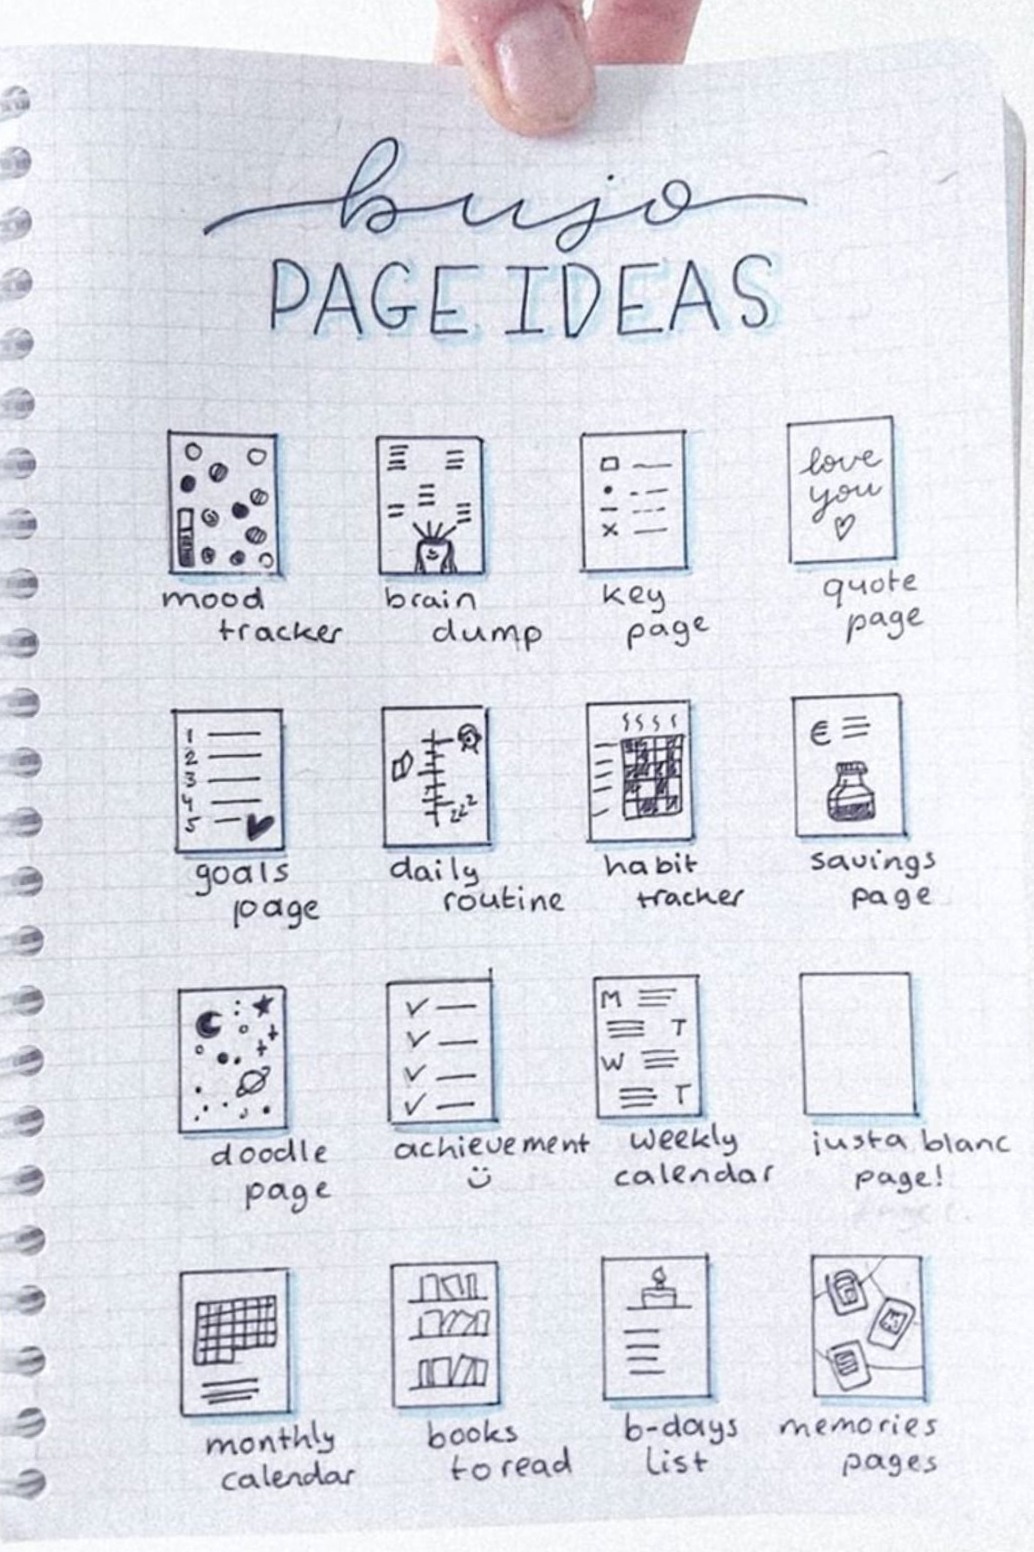 bujo
PAGE IDEAS
love
you
mood
tracker
brain
dump
key
page
quote
page
1
2
3
4
5
zzz
€
goals
page
daily
routine
habit
tracker
savings
page
M
T
W
T
doodle
page
achievement
weekly
calendar
just a blanc
page!
monthly
calendar
books
to read
b-days
list
memories
pages